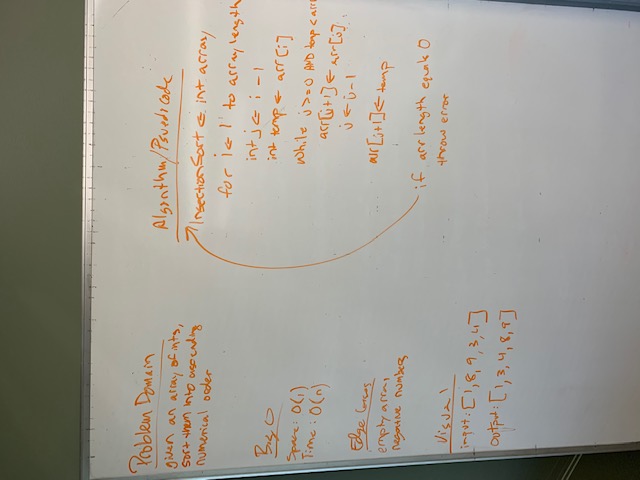 Problem Domain
given an array of ints,
sort them into ascending
numerical order
Big O
Space: O(1)
Time: O(n)
Edge Cases
empty array
negative numbers
Visual
input: [1, 8, 9, 3, 4]
output: [1, 3, 4, 8, 9]
Algorithm/Psuedicode
InsectionSort ← int array
for i ← 1 to array length
int j ← i - 1
int temp ← arr[i]
while j >= 0 AND temp < arr
arr[j+1] ← arr[j]
j ← j - 1
arr[j+1] ← temp
if arr length equals 0
throw error